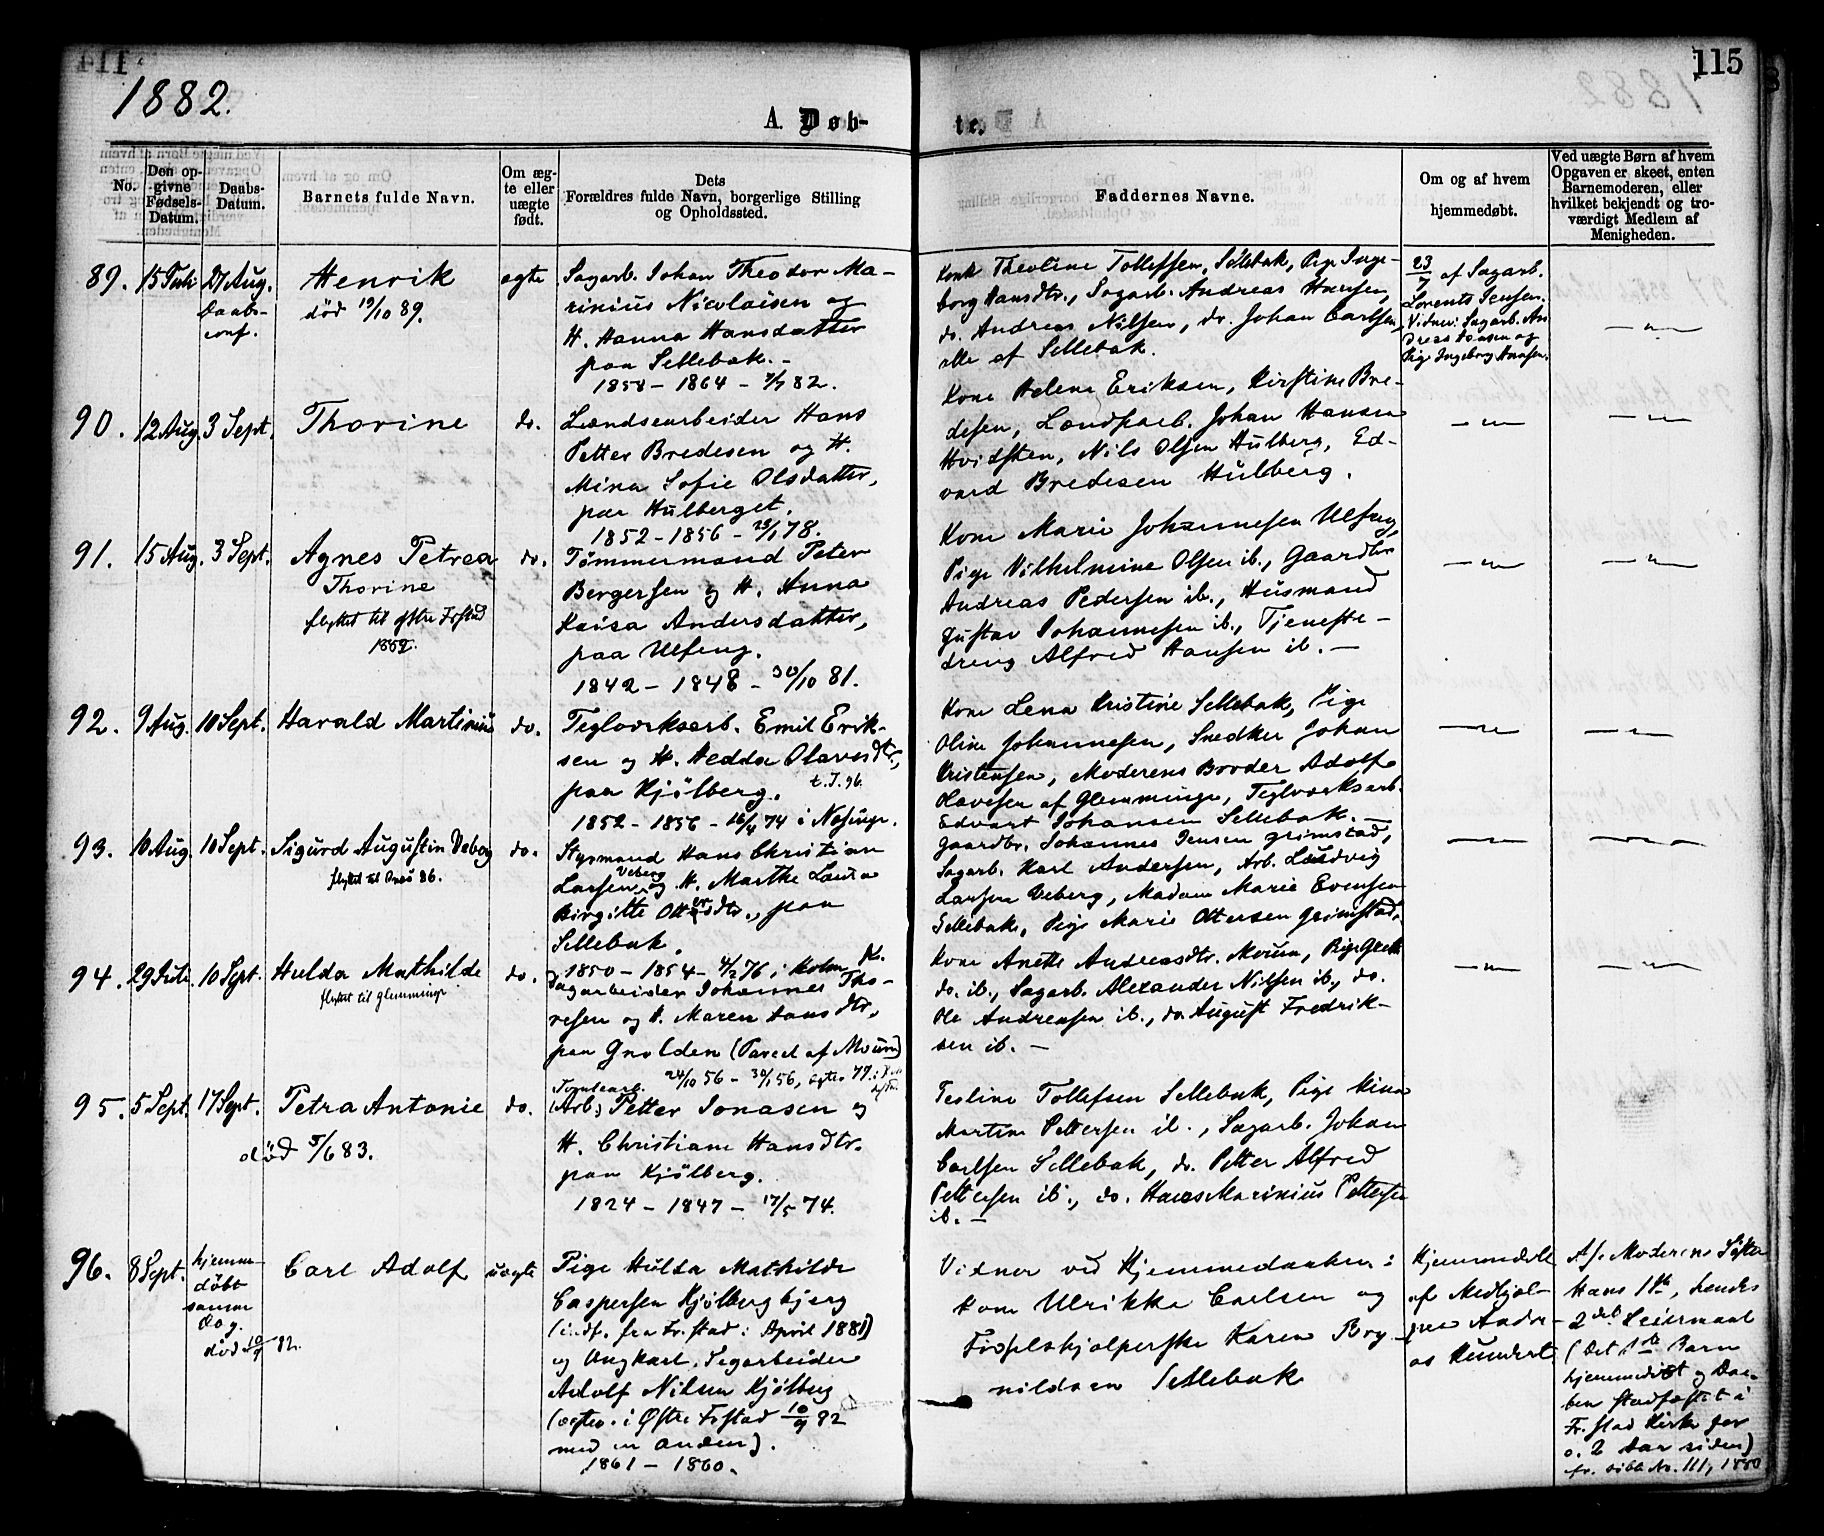 1882.
115
A. Døb-
te.
No.
Den op-
givne
Fødsels-
Datum.
Daabs-
Datum.
Barnets fulde Navn.
Om æg-
te eller
uægte
født.
Dets
Forældres fulde Navn, borgerlige Stilling
og Opholdssted.
Faddernes Navne.
Om og af hvem
hjemmedøbt.
Ved uægte Børn af hvem
Opgaven er skeet, enten
Barnemoderen, eller
hvilket bekjendt og tro-
værdigt Medlem af
Menigheden.
89. 15 Juli 27 Aug. Henrik ægte
Daabs-
conf.
død 19/10 89.
Sagarb. Johan Theodor Ma-
rinius Nicolaisen og
H. Hanna Hansdatter
paa Sellebak. -
1858 - 1864 - 82.
Kone Theoline Tollefsen, Sellebak, Pige Inge-
borg Hansdtr., Sagarb. Andreas Hansen,
do. Andreas Nilsen, do. Johan Carlsen,
alle af Sellebak.
23/7 af Sagarb.
Lorents Jensen.
Vidner: Sagarb. An
dreas Hansen og
Pige Ingeborg Hansen.
—"—
90. 12 Aug. 3 Sept. Thorine do.
Lændsearbeider Hans
Petter Bredesen og H.
Mina Sofie Olsdatter,
paa Hulberget.
1852 - 1856 - 78.
Kone Helene Eriksen, Kirstine Bre-
desen, Landsarb. Johan Hansen
Hvidsten, Nils Olsen Hulberg, Ed-
vard Bredesen Hulberg.
—"—
—"—
91. 15 Aug. 3 Sept. Agnes Petrea do.
Thorine
flyttet til østre Fr.stad
1882.
Tømmermand Peter
Bergersen og H. Anna
Kaisa Andersdatter,
paa Ulfeng.
1842 - 1848 - 30/10 81.
Kone Marie Johannesen Ulfeng,
Pige Vilhelmine Olsen ib., Gaardbr
Andreas Pedersen ib., Husmand
Gustav Johannesen ib., Tjeneste-
dreng Alfred Hansen ib. —
—"—
—"—
92. 9 Aug. 10 Sept. Harald Martinius do.
Teglverksarb. Emil Erik-
sen og H. Hedda Olavesdtr.,
paa Kjølberg. t. I. 96.
1852 - 1856 - 16/4 74 i
Kone Lena Kristine Sellebak, Pige
Oline Johannesen, Snedker Johan
Kristensen, Moderens Broder Adolf
Olavesen af Glemminge, Teglverksarb.
Edvart Johansen Sellebak. —
—"—
—"—
93. 10 Aug. 10 Sept. Sigurd Augustin Veberg do.
flyttet til Onsø 86.
Styrmand Hans Christian
Larsen Veberg og H. Marthe Lovise
Birgitte Ottersdtr., paa
Sellebak.
1850 - 1854 - 4/2 76 i Holm
Gaardbr. Johannes Jensen Grimstad,
Sagarb. Karl Andersen, Arb. Ludvig
Larsen Veberg, Madam Marie Evensen
Sellebak, Pige Marie Ottersen Grimstad.
—"—
—"—
94. 29 Juli 10 Sept. Hulda Mathilde do.
flyttet til Glemminge
Sagarbeider Johannes Tho-
resen og H. Maren Hansdtr,
paa Gnolden (Parcel af Moum)
24/10 56 - 30/1 56, ægtev. 77.
Kone Anette Andreasdtr. Moum, Pige Grethe
do. ib., Sagarb. Alexander Nilsen ib., do.
Ole Andreasen ib., do. August Fredrik-
sen ib. —
—"—
—"—
95. 5 Sept. 17 Sept. Petra Antonie do.
død 5/6 83.
(Arb.) Petter Jonasen og
H. Christiane Hansdtr.
paa Kjølberg.
1824 - 1847 - 17/5 74.
Teoline Tollefsen Sellebak, Pige Mina
Martine Pettersen ib., Sagarb. Johan
Carlsen Sellebak, do. Petter Alfred
Pettersen ib., do. Hans Marinius Pettersen
ib. —
96. 8 Sept. hjemme-
døbt
samme
Dag.
død 10/9 82.
Carl Adolf uægte
Pige Hulda Mathilde
Caspersen Kjølbergbjerg
(indf. fra Fr.stad i April 1881)
og Ungkarl, Sagarbeider
Adolf Nilsen Kjølberg
(ægtev. i Østre Fr.stad 10/9 82
med en anden).
1861 - 1860.
Vidner ved Hjemmedaaben:
Kone Ulrikke Carlsen og
Fødselshjælperske Karen Bry-
nildsen Sellebak
Hjemmedøbt
af Medhjæl-
per Andre-
as Hundert
Af Moderens Søster
Hans 1ste, hendes
2det Leiermaal
(Det 1ste Barn
hjemmedøbt og Daa-
ben stadfæstet i
Fr.stad Kirke for
c. 2 Aar siden)
fr. No. 111, 1880